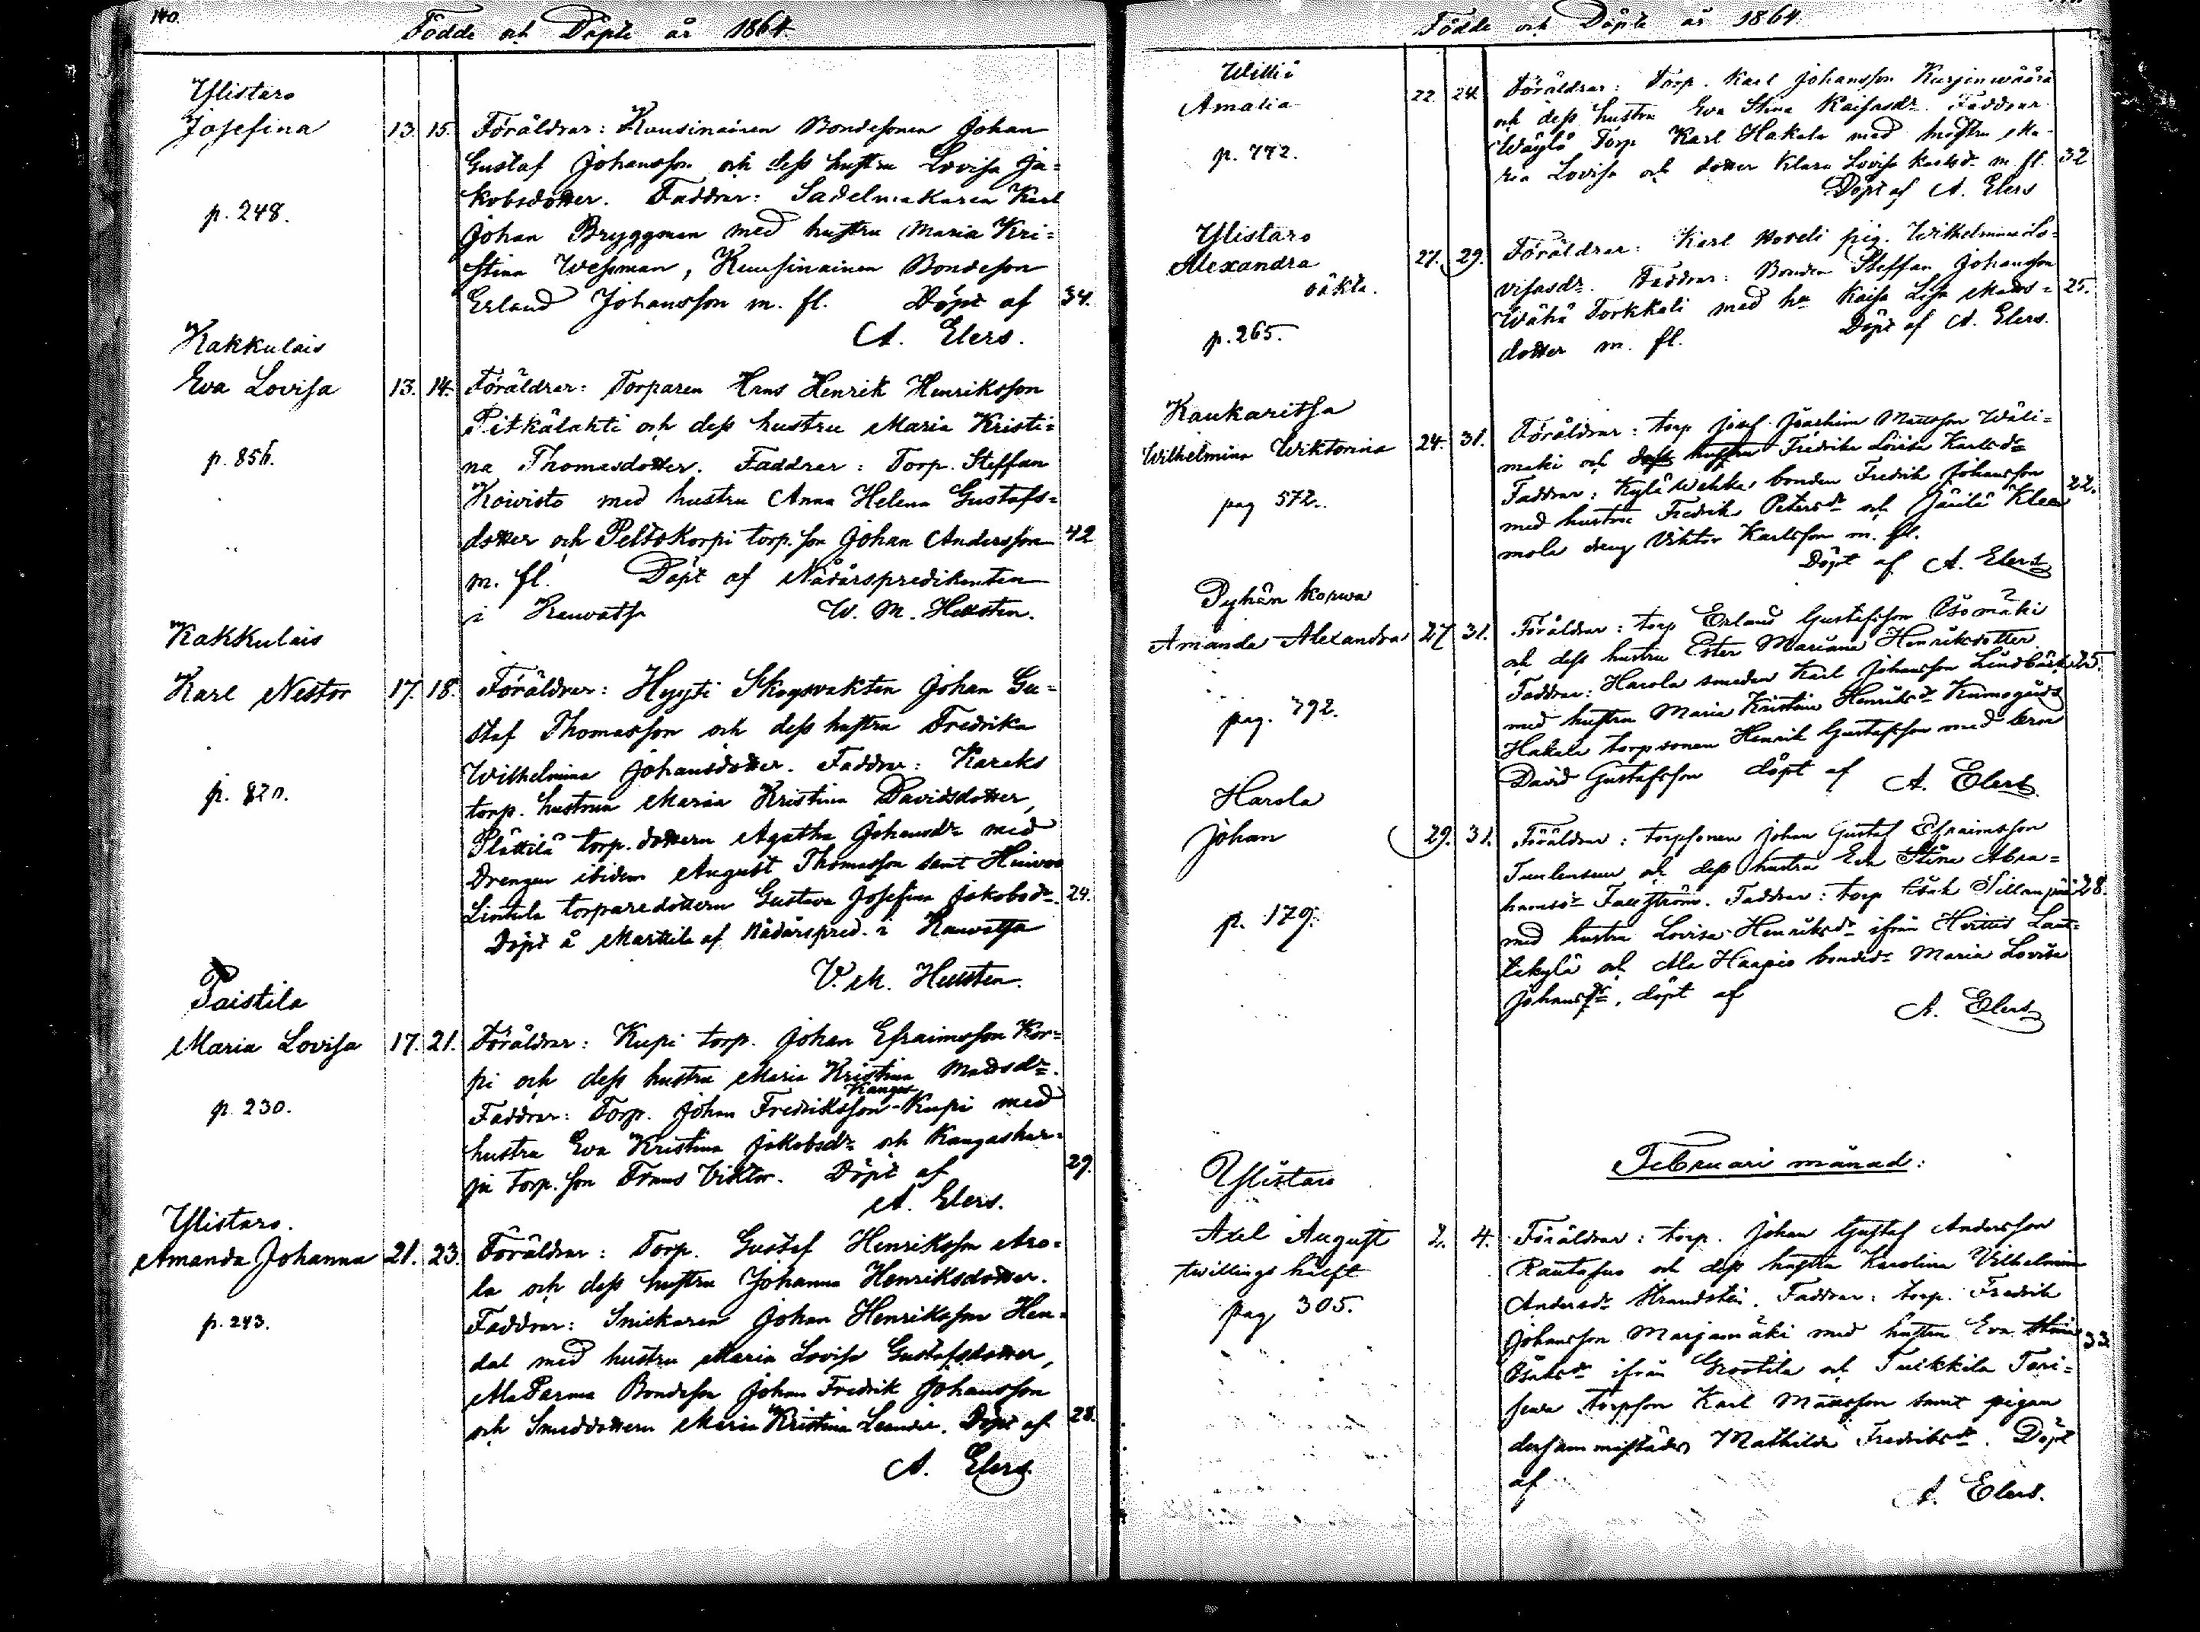 140.
Födde och Döpte år 1864.
Ylistaro
Josefina 13. 15. Föräldrar: Kuusinainen Bondesonen Johan
Gustaf Johansson och dess hustru Lovisa Ja=
kobsdotter. Faddrar: Sadelmakaren Karl
p. 248.
Johan Bryggman med hustru Maria Kri=
stina Wessman, Kuusinainen Bondeson
Erland Johansson m. fl. Döpt af 34.
A. Elers.
Kakkulais
Eva Lovisa 13. 14. Föräldrar: Torparen Hans Henrik Henriksson
Pitkälahti och dess hustru Maria Kristi=
p. 856.
na Thomasdotter. Faddrar: Torp. Steffan
Koivisto med hustru Anna Helena Gustafs=
dotter och Peltokorpi torp. son Johan Andersson 42
m. fl. Döpt af Nådårspredikanten
i Kauvatsa W. M. Hellsten.
Kakkulais
Karl Nestor 17. 18. Föräldrar: Hyyti Skogsvakten Johan Gu=
staf Thomasson och dess hustru Fredrika
Wilhelmina Johansdotter. Faddrar: Kareks
p. 820.
torp. hustrun Maria Kristina Davidsdotter,
Plättilä torp. dottern Agatha Johansdr med
Drengen ibidem August Thomasson samt
Lintula torparedottern Gustava Josefina Jakobsdr. 24.
Döpt å Marttila af Nådårspred. i Kauvatsa
V. M. Hellsten.
Paistila
Maria Lovisa 17. 21. Föräldrar: Kupi torp. Johan Efraimsson Kor=
pi och dess hustru Maria Kristina Madsdr.
Kangas
Faddrar: Torp. Johan Fredriksson-Kupi med
p. 230.
hustru Eva Kristina Jakobsdr och Kangashar=
ju torp. son Frans Viktor. Döpt af 29.
A. Elers.
Ylistaro.
Amanda Johanna 21. 23. Föräldrar: Torp. Gustaf Henriksson Aro=
la och dess hustru Johanna Henriksdotter.
p. 243.
Faddrar: Snickaren Johan Henriksson Hen=
dal med hustru Maria Lovisa Gustafsdotter,
Ala Parma Bondeson Johan Fredrik Johansson
och Smeddottern Maria Kristina Leander. Döpt af 28.
A. Elers.
Födde och Döpte år 1864.
Wittii
Amalia 22. 24. Föräldrar: Torp. Karl Johansson Kurjenwäärä
och dess hustru Eva Stina Kaisasdr. Faddrar
Wäylä Torp Karl Hakala med hustru Ma-
p. 772.
ria Lovisa och dotter Klara Lovisa Karlsdr m. fl. 32
Döpt af A. Elers
Ylistaro
Alexandra 27. 29. Föräldrar: Karl pig. Wilhelmina Lo=
oäkta.
visasdr. Faddrar: Bonden Steffan Johansson
Wähä Torkkeli med hu Kaisa Lisa Mads= 25.
p. 265.
dotter m. fl. Döpt af A. Elers.
Kaukaritsa
Wilhelmina Wiktorina 24. 31. Föräldrar: torp Josef Joachim Mattsson Wäli=
mäki och dess hustru Fredrika Lovisa Karlsdr
Faddrar: Kylä Wehka bonden Fredrik Johansson 22.
pag 572.
med hustru Fredrika Petersdr och
mola dreng Viktor Karlsson m. fl.
Döpt af A. Elers
Pyhän korwa
Amanda Alexandra 27 31. Föräldrar: torp Erland Gustafsson Isomäki
och dess hustru Ester Mariana Henriksdotter
Faddrar: Harola smeden Karl Johansson Lindbäck 25.
pag. 792.
med hustru Maria Kristina Henriksdr
Hakala torpsonen Henrik Gustafsson med bror
David Gustafsson döpt af A. Elers.
Harola
Johan 29. 31. Föräldrar: torpsonen Johan Gustaf Efraimsson
Tuulensuu och dess hustru Eva Stina Abra=
hamsdr Fallström. Faddrar: torp Isak Sillanpää 28.
p. 179.
med hustru Lovisa Henriksdr ifrån Hiittis Laut=
tikylä och Ala Haapio bondedr Maria Lovisa
Johansdr, döpt af
A. Elers
Februari månad:
Ylistaro
Axel August 2. 4. Föräldrar: torp. Johan Gustaf Andersson
twillings hälft
Rautasuo och dess hustru Karolina Vilhelmina
pag 305.
Andersdr Strandsten. Faddrar: torp. Fredrik
Johansson Marjamäki med hustru Eva Stina 33.
Isaksdr ifrån Grootila och Tuikkila Tori=
torpson Karl Mattsson samt pigan
dersammastädes Mathilda Fredriksdr. Döpt
af
A. Elers.